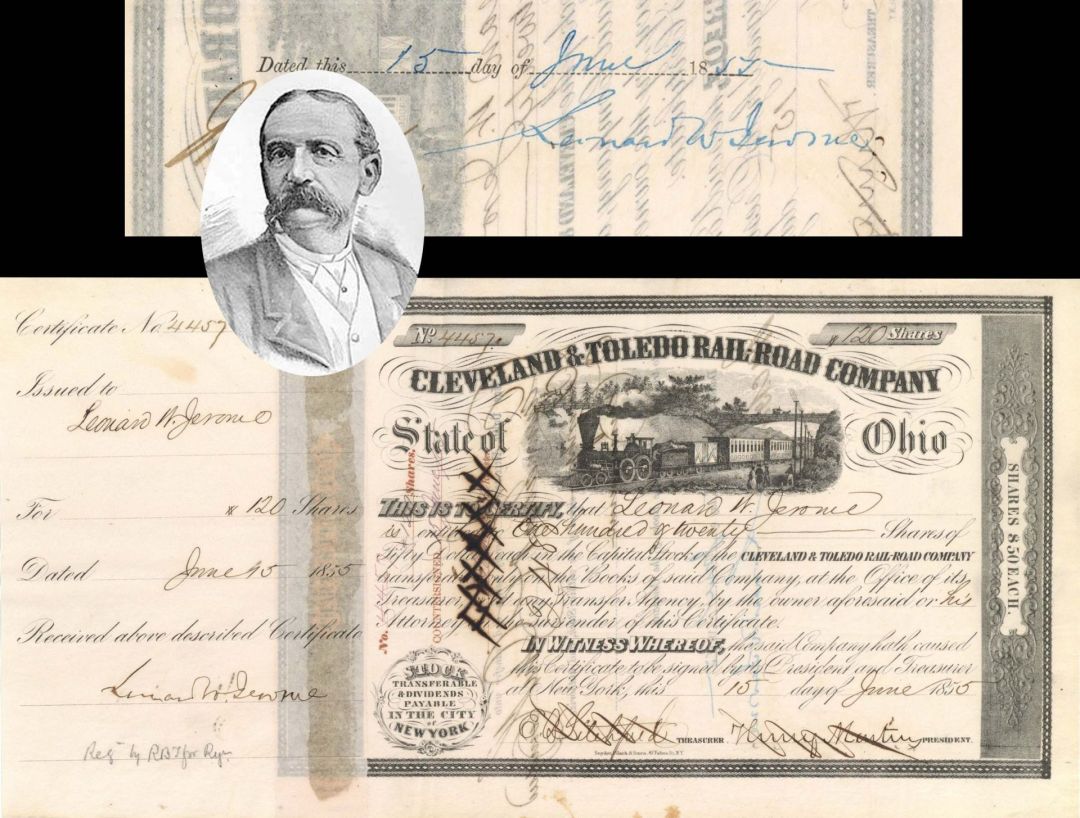 Dated this 15 day of June 1855
Leonard W Jerome
Certificate No. 4457
Issued to
Leonard W. Jerome
For 120 Shares
Dated June 15 1855
Received above described Certificate
Leonard W Jerome
No. 4457
120 Shares
CLEVELAND & TOLEDO RAIL-ROAD COMPANY
State of Ohio
THIS IS TO CERTIFY, that Leonard W. Jerome
is entitled to One hundred & twenty Shares of
Fifty Dollars each in the Capital Stock of the CLEVELAND & TOLEDO RAIL-ROAD COMPANY
transferable only on the Books of said Company, at the Office of its
Treasurer, any Transfer Agency, by the owner aforesaid or his
Attorney surrender of this Certificate.
IN WITNESS WHEREOF, the said Company hath caused
this Certificate to be signed by its President and Treasurer
at New York, this 15 day of June 1855
TREASURER. PRESIDENT.
STOCK
TRANSFERABLE
& DIVIDENDS
PAYABLE
IN THE CITY
OF
NEW YORK
SHARES $50 EACH.
No.
Shares,
COUNTERSIGNED